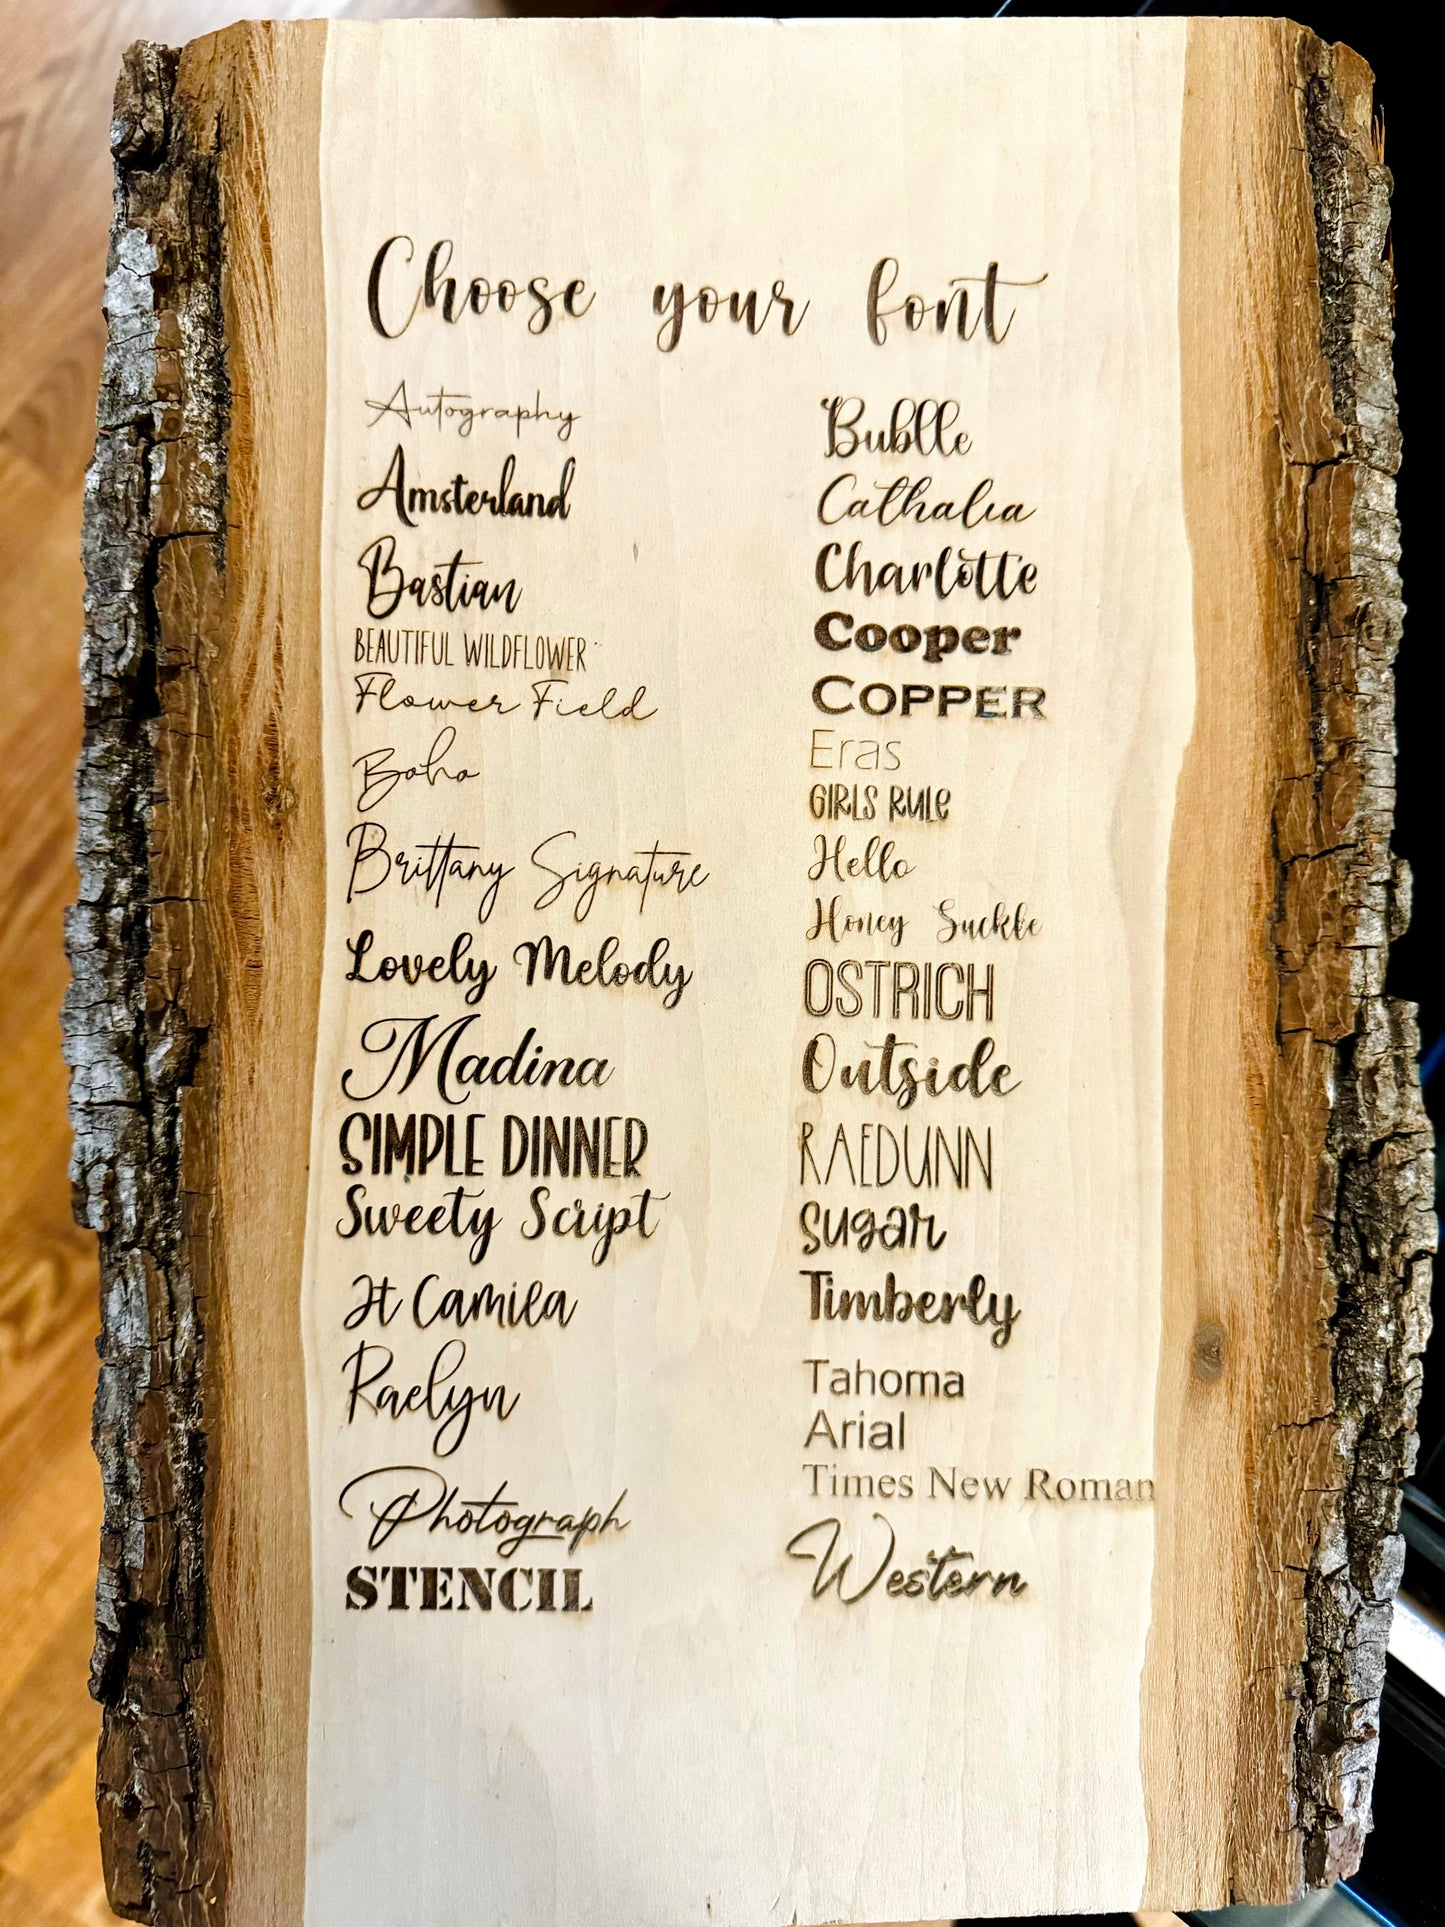 Choose your font
Autography
Amsterland
Bastian
BEAUTIFUL WILDFLOWER
Flower Field
Boho
Brittany Signature
Lovely Melody
Madina
SIMPLE DINNER
Sweety Script
Jt Camila
Raelyn
Photograph
STENCIL
Bublle
Cathalia
Charlotte
Cooper
COPPER
Eras
GIRLS RULE
Hello
Honey Suckle
OSTRICH
Outside
RAEDUNN
sugar
Timberly
Tahoma
Arial
Times New Roman
Western